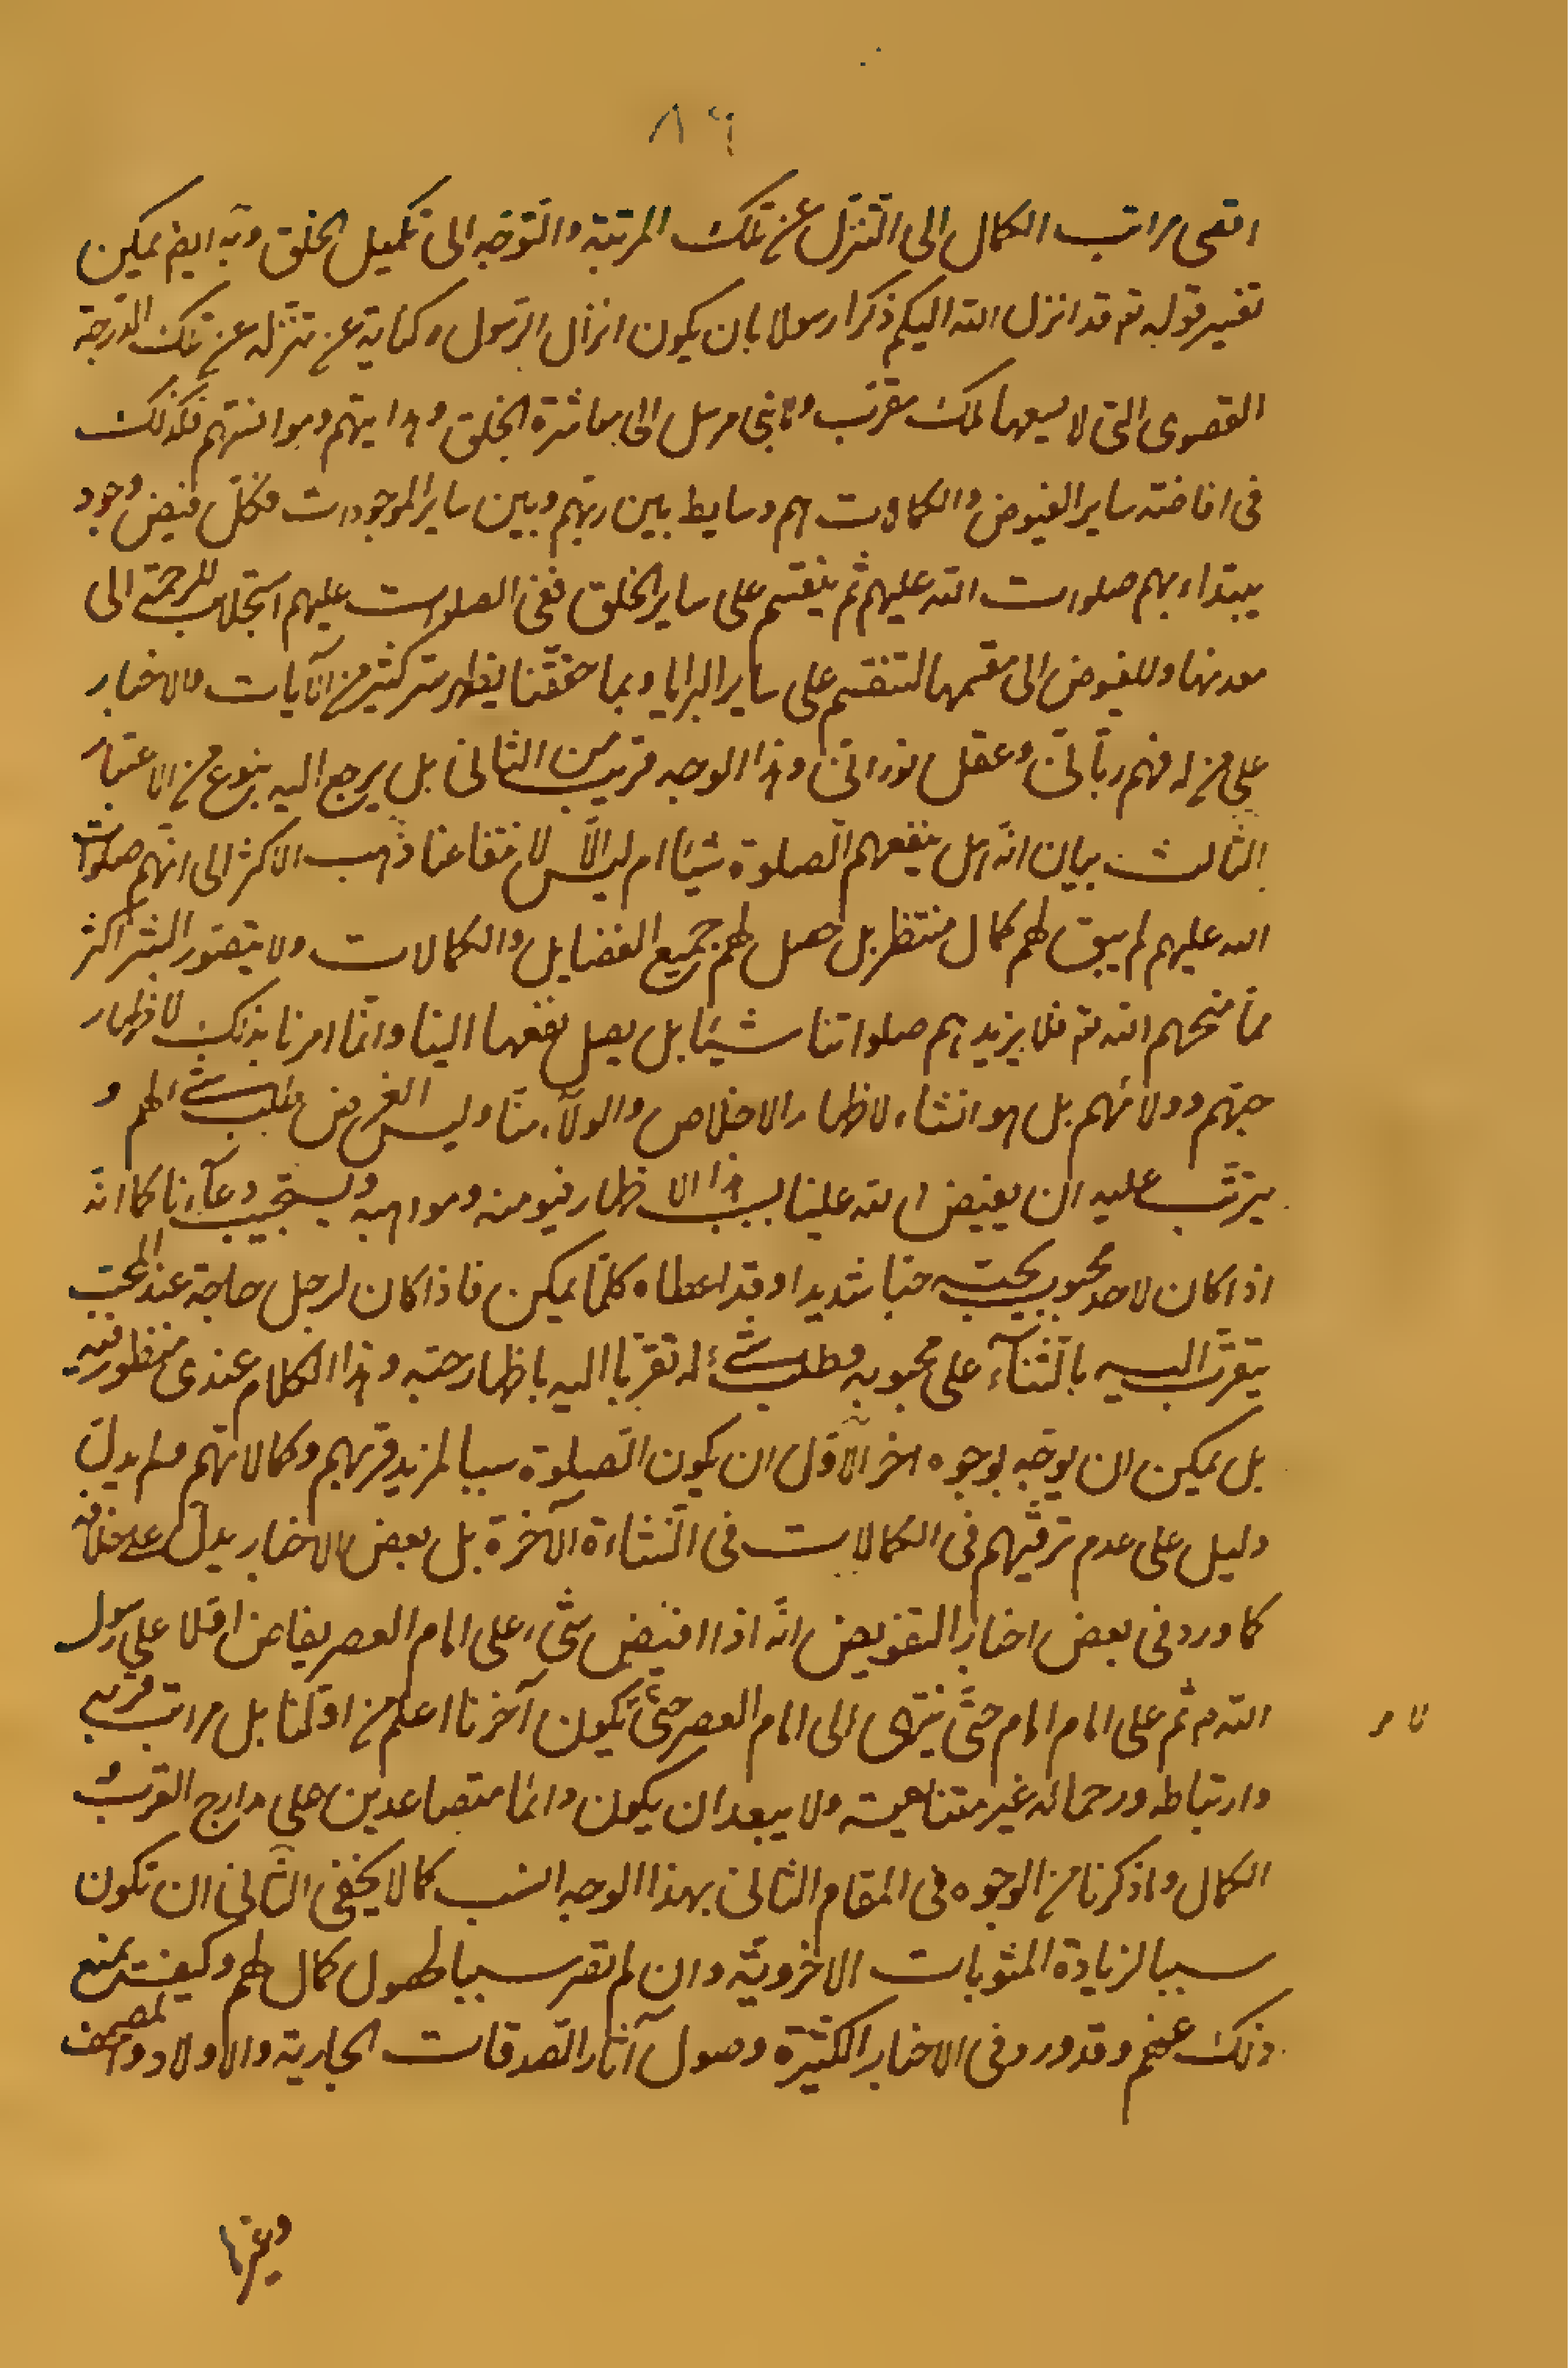 ٨٦
اقصى مراتب الكمال الى التنزل عن تلك المرتبة والتوجه الى تكميل الخلق وبه ايض يمكن
تفسير قوله تع قد انزل الله اليكم ذكرا رسولا بان يكون انزال الرسول كناية عن تنزله عن تلك الدرجة
القصوى التى لا يسعها ملك مقرب ولا نبى مرسل الى معاشرة الخلق وهدايتهم وموانستهم فكذلك
فى افاضته ساير الفيوض والكمالات هم وسايط بين ربهم وبين ساير الموجودات فكل فيض وجود
يبتداء بهم صلوات الله عليهم ثم ينقسم على ساير الخلق ففى الصلوات عليهم استجلاب للرحمة الى
معدنها وللفيوض الى مقسمها لتنقسم على ساير البرايا وبما حققنا يظهر سر كثير من الآيات والاخبار
على من له فهم ربانى وعقل نورانى وهذا الوجه قريب من الثانى بل يرجع اليه بنوع من الاعتبار
الثالث بيان انه هل ينفعهم الصلوة شيئا ام ليس الا لانتفاعنا ذهب الاكثر الى انهم صلوات
الله عليهم لم يبق لهم كمال منتظر بل حصل لهم جميع الفضايل والكمالات ولا يتصور لبشر اكثر
مما منحهم الله تع فلا يزيدهم صلواتنا شيئا بل يصل نفعها الينا وانما امرنا بذلك لاظهار
حبهم وولائهم بل هو انشاء لاظهار الاخلاص والولاء منا وليس الغرض طلب شئ لهم و
يترتب عليه ان يفيض الله علينا بسبب هذا الاظهار فيوضه ومواهبه ويستجيب دعآءنا كما انه
اذا كان لاحد محبوب يحبه حبا شديدا وقد اعطاه كلما يمكن فاذا كان لرجل حاجة عند المحب
يتقرب اليه بالثنآء على محبوبه وطلب شئ له تقربا اليه باظهار حبه وهذا الكلام عندى منظور فيه
بل يمكن ان يوجه بوجوه اخر الاول ان يكون الصلوة سببا لمزيد قربهم وكمالاتهم ولم يدل
دليل على عدم ترقيهم فى الكمالات فى النشاءة الآخرة بل بعض الاخبار يدل على خلافه
كما ورد فى بعض اخبار التفويض انه اذا افيض شىء على امام العصر يفاض اولا على رسول
الله ص ثم على امام امام حتى ينتهى الى امام العصر حتى لا يكون آخرنا اعلم من اولنا بل مراتب قربه
وارتباطه ورحماته غير متناهية ولا يبعد ان يكون دائما متصاعدين على مدارج القرب و
الكمال وما ذكرنا من الوجوه فى المقام الثانى بهذا الوجه انسب كما لا يخفى الثانى ان تكون
سببا لزيادة المثوبات الاخروية وان لم تصر سببا لحصول كمال لهم وكيف يمنع
ذلك عنهم وقد ورد فى الاخبار الكثيرة وصول آثار الصدقات الجارية والاولاد والمصحف
وغيرها